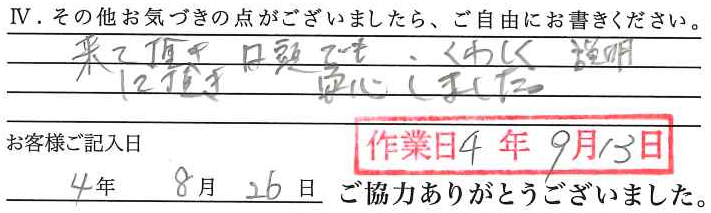 Ⅳ．その他お気づきの点がございましたら、ご自由にお書きください。
来て頂き 口頭でも、くわしく 説明
して頂き 安心しました。
お客様ご記入日
作業日4年9月13日
4年 8月 26日 ご協力ありがとうございました。